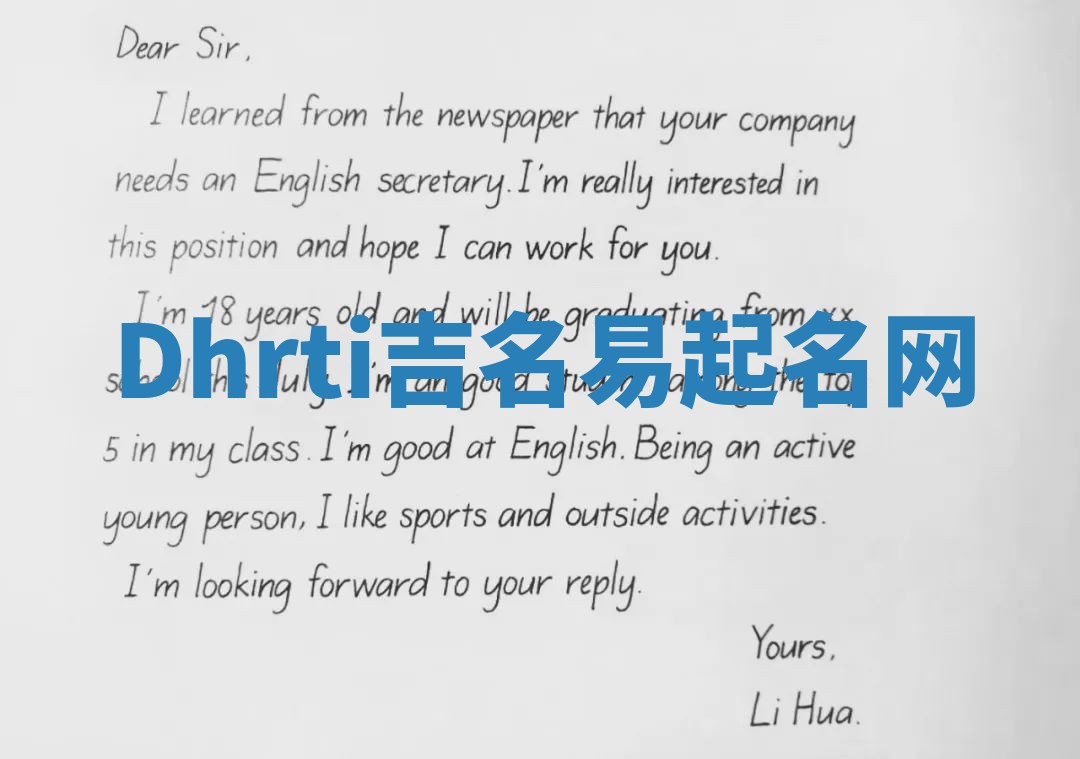 Dear Sir,
I learned from the newspaper that your company
needs an English secretary. I'm really interested in
this position and hope I can work for you.
I'm 18 years old and will be graduating from xx
Dhrti吉名易起名网
school this July. I'm an good student among the top
5 in my class. I'm good at English. Being an active
young person, I like sports and outside activities.
I'm looking forward to your reply.
Yours,
Li Hua.